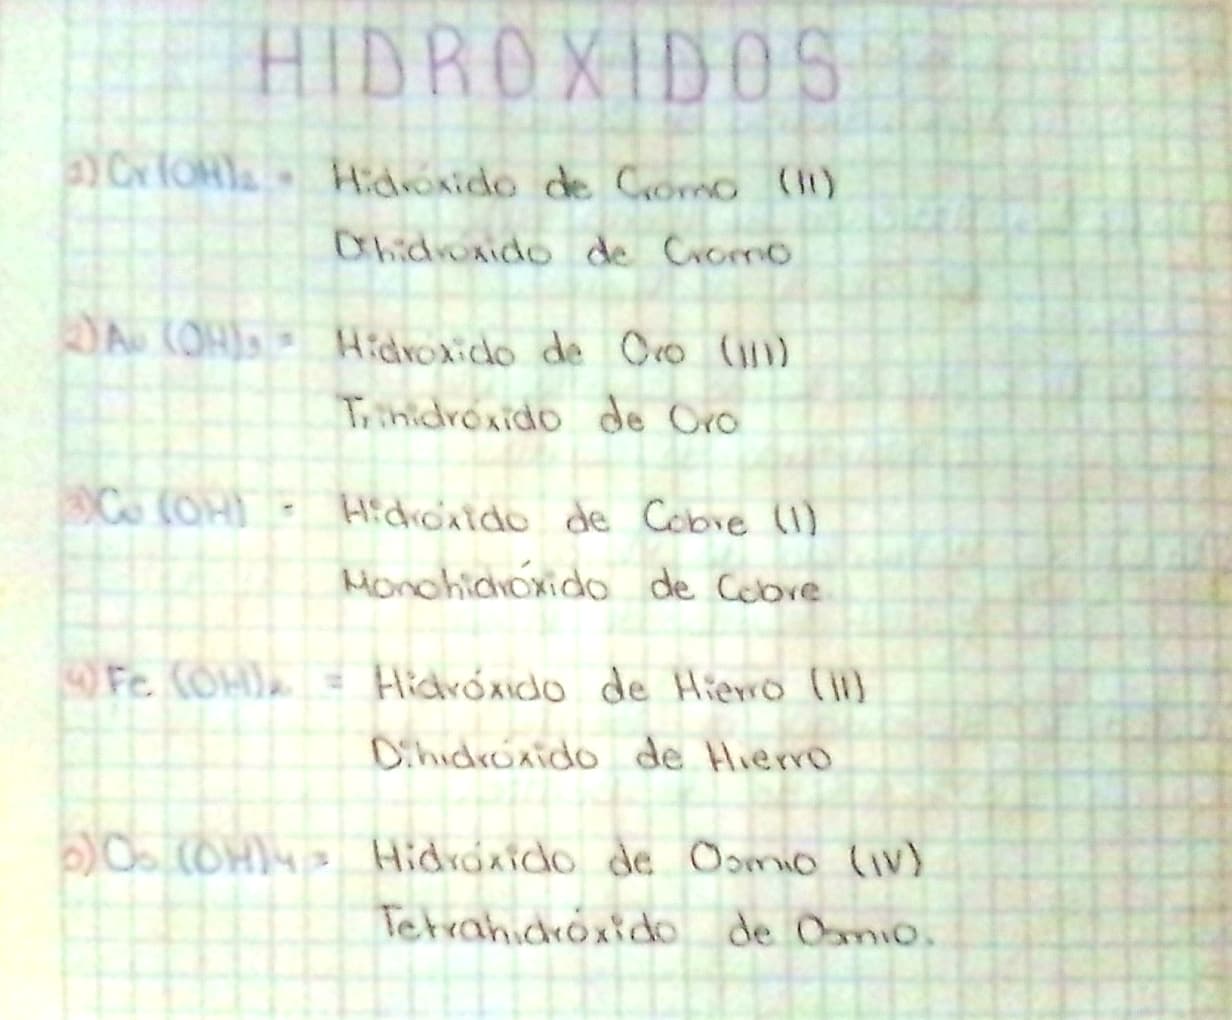 HIDROXIDOS
1) Cr(OH)2 = Hidróxido de Cromo (II)
Dihidroxido de Cromo
2) Au (OH)3 = Hidroxido de Oro (III)
Trihidróxido de Oro
3) Cu (OH) = Hidróxido de Cobre (I)
Monohidróxido de Cobre
4) Fe (OH)2 = Hidróxido de Hierro (II)
Dihidróxido de Hierro
5) Os (OH)4 = Hidróxido de Osmio (IV)
Tetrahidróxido de Osmio.